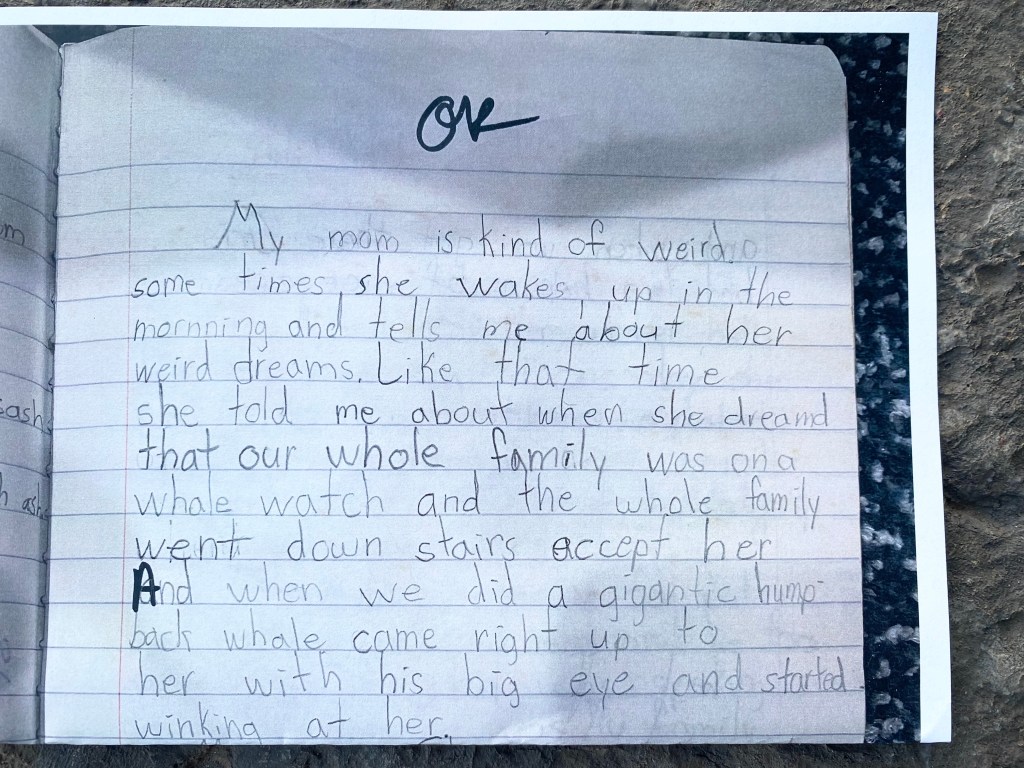 OK
My mom is kind of weird.
some times she wakes up in the
mornning and tells me about her
weird dreams. Like that time
she told me about when she dreamd
that our whole family was on a
whale watch and the whole family
went down stairs accept her
And when we did a gigantic hump
back whale came right up to
her with his big eye and started
winking at her.
m
h ash